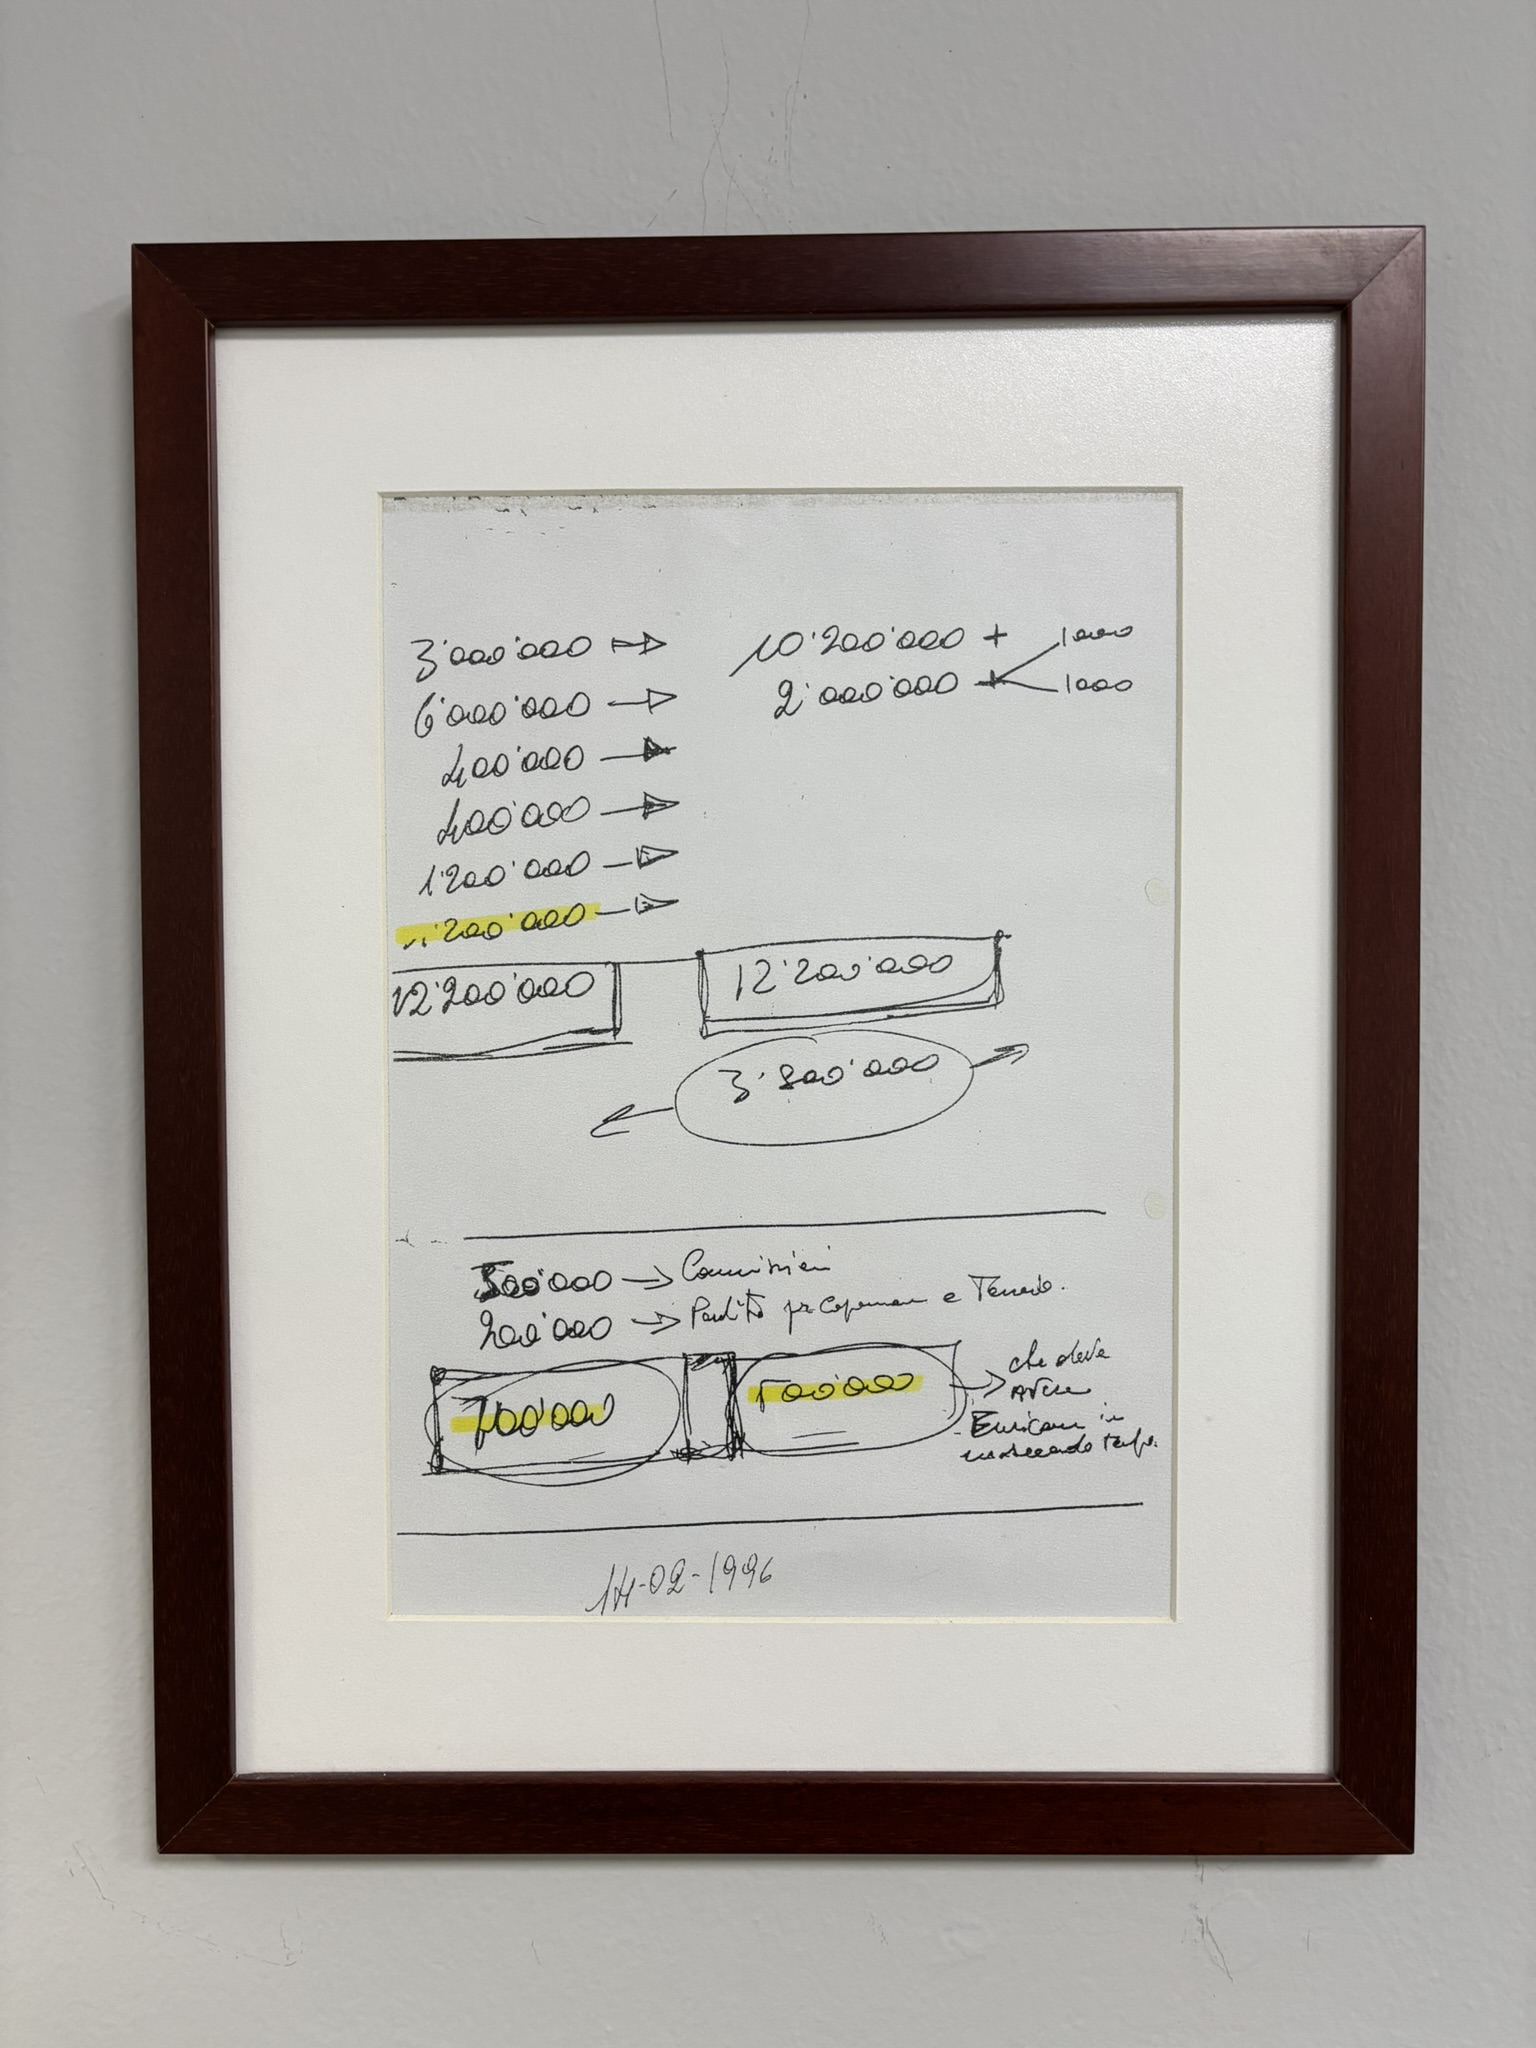 3'000'000 →
6'000'000 →
400'000 →
400'000 →
1'200'000 →
1'200'000 →
12'200'000
10'200'000 + 1000
2'000'000 + 1000
12'200'000
3'800'000
500'000 → Commissioni
200'000 → Perdita per e
700'000
500'000 → che deve
avere
in
14-02-1996